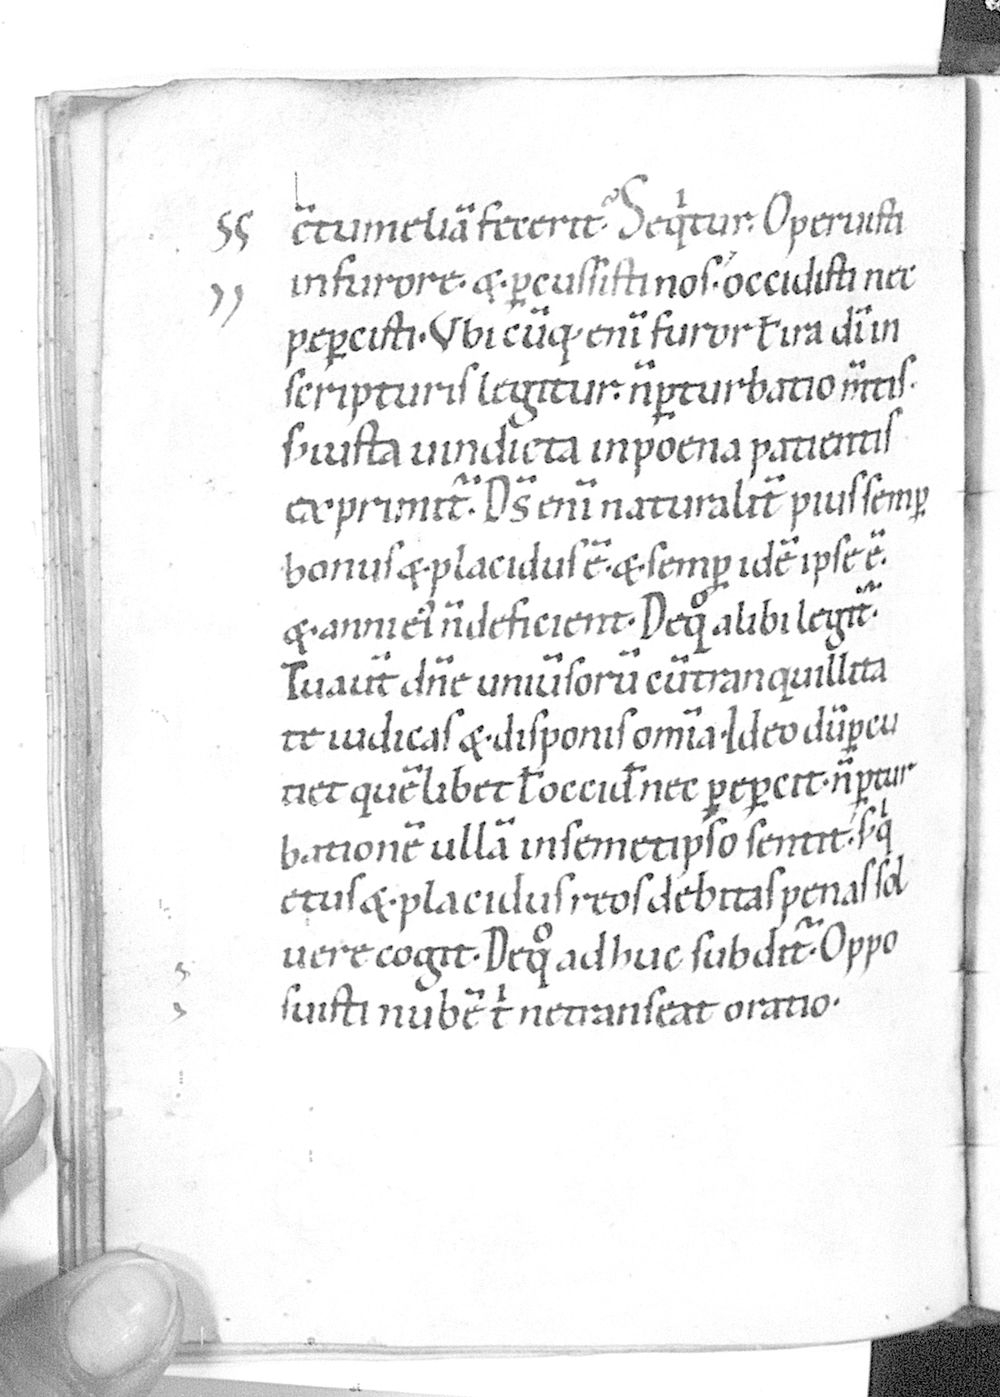 c̄tumeliā fecerit. Seqͥtur. Operuisti
in furore. & ꝑcussisti nos. occidisti nec
peꝑcisti. Vbicūq; enī furor ł ira dn̄i in
scripturis legitur. n̄ ꝑturbatio m̄tis.
s; iusta uindicta in poena patientis
exprimit̃. Ds̄ enī naturalit̃ pius semꝑ
bonus & placidus ē. & semꝑ idē ipse ē.
& anni ei n̄ deficient. De qͦ alibi legit̃.
Tu aut̃ dn̄e uniūsorū cū tranquillita
te iudicas & disponis om̄ia. Ideo dū ꝑcu
tiet quēlibet ł occid̄ nec ꝑeꝑcit. n̄ ꝑtur
bationē ullā in semetipso sentit. s; qͥ
etus & placidus reos debitas penas sol
uere cogit. De qͦ adhuc subdit̃. Oppo
suisti nubē tͥ ne transeat oratio.